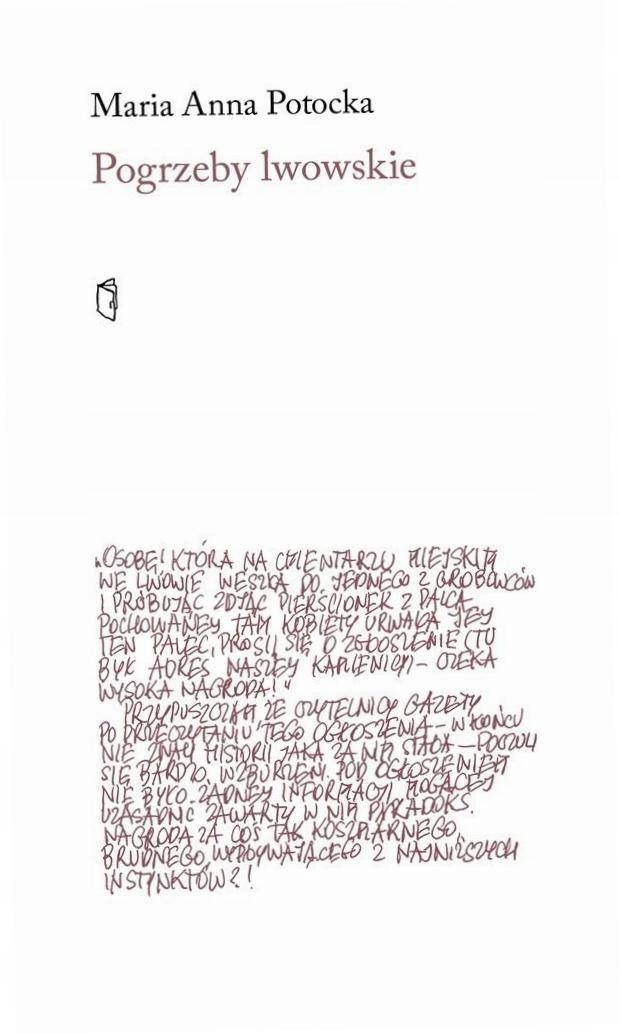 Maria Anna Potocka
Pogrzeby lwowskie
„OSOBĘ, KTÓRA NA CMENTARZU MIEJSKIM
WE LWOWIE WESZŁA DO JEDNEGO Z GROBOWCÓW
I PRÓBUJĄC ZDJĄĆ PIERŚCIONEK Z PALCA
POCHOWANEJ TAM KOBIETY URWAŁA JEJ
TEN PALEC, PROSI SIĘ O ZGŁOSZENIE (TU
BYŁ ADRES NASZEJ KAMIENICY) – CZEKA
WYSOKA NAGRODA!"
PRZYPUSZCZAM, ŻE CZYTELNICY GAZETY
PO PRZECZYTANIU TEGO OGŁOSZENIA – W KOŃCU
NIE ZNALI HISTORII JAKA ZA NIM STAŁA – POCZULI
SIĘ BARDZO WZBURZENI. POD OGŁOSZENIEM
NIE BYŁO ŻADNEJ INFORMACJI MOGĄCEJ
UZASADNIĆ ZAWARTY W NIM PARADOKS.
NAGRODA ZA COŚ TAK KOSZMARNEGO,
BRUDNEGO, WYPŁYWAJĄCEGO Z NAJNIŻSZYCH
INSTYNKTÓW?!